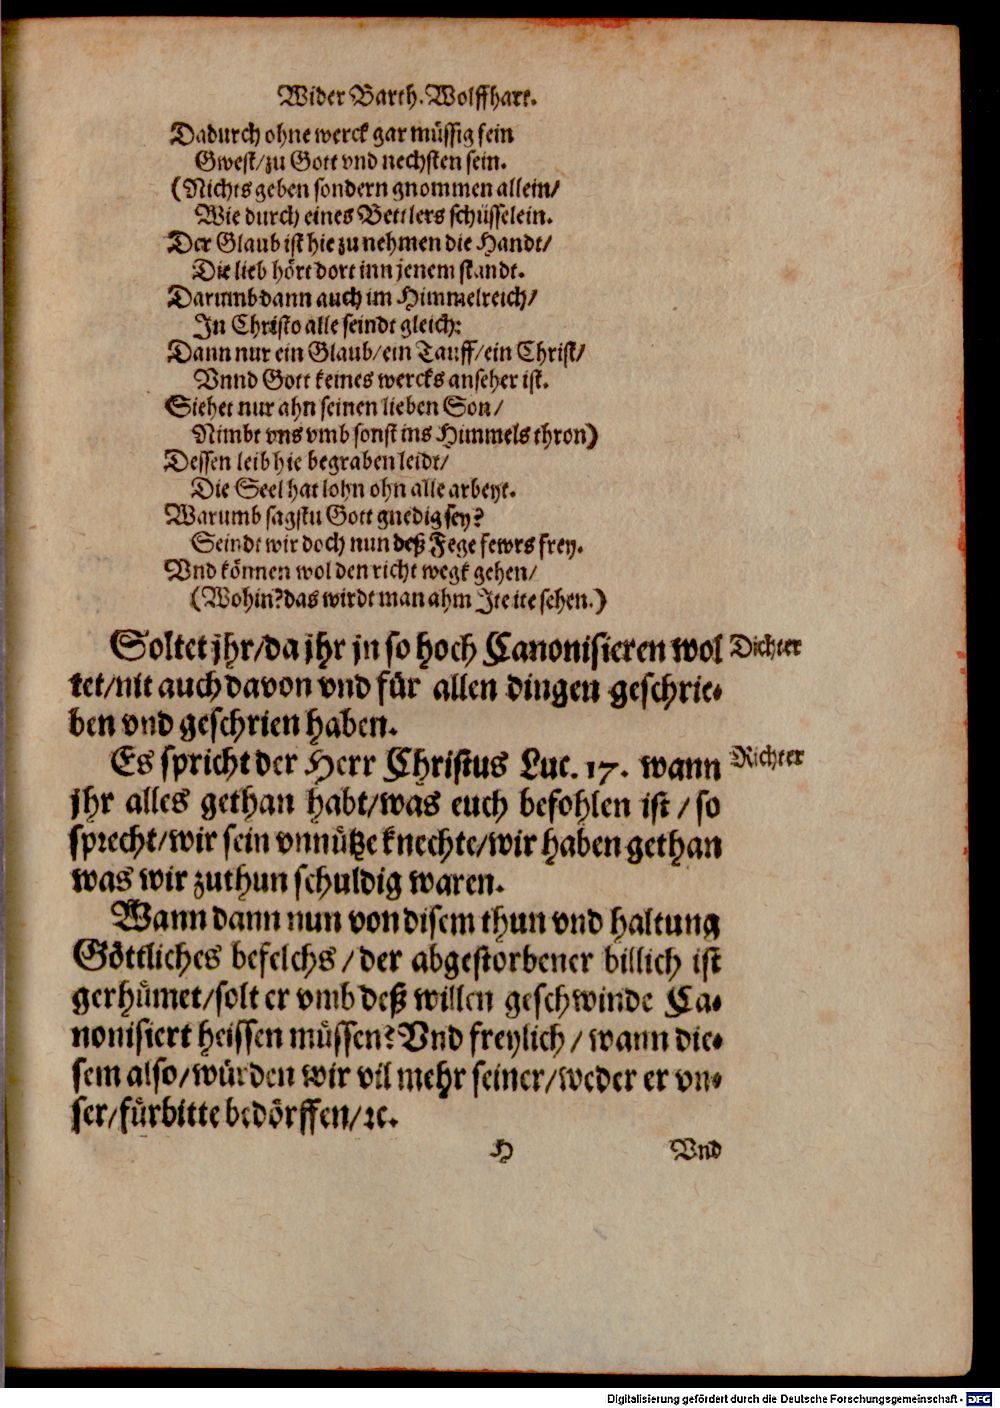 Wider Barth. Wolffhart.
Dadurch ohne werck gar müssig sein
Gwest/zu Gott vnd nechsten sein.
(Nichts geben sondern gnommen allein/
Wie durch eines Bettlers schüsselein.
Der Glaub ist hie zu nehmen die Handt/
Die lieb hört dort inn jenem standt.
Darumb dann auch im Himmelreich/
In Christo alle seindt gleich:
Dann nur ein Glaub/ein Tauff/ein Christ/
Vnnd Gott keines wercks anseher ist.
Siehet nur ahn seinen lieben Son/
Nimbt vns vmb sonst ins Himmels thron)
Dessen leib hie begraben leidt/
Die Seel hat lohn ohn alle arbeyt.
Warumb sagstu Gott gnedig sey?
Seindt wir doch nun deß Fegefewrs frey.
Vnd können wol den richt wegk gehen/
(Wohin? das wirdt man ahm Ite ite sehen.)
Soltet jhr/da jhr jn so hoch Canonisieren wol Dichter
tet/nit auch davon vnd für allen dingen geschrie-
ben vnd geschrien haben.
Es spricht der Herr Christus Luc. 17. wann Richter
jhr alles gethan habt/was euch befohlen ist/so
sprecht/wir sein vnnütze knechte/wir haben gethan
was wir zuthun schuldig waren.
Wann dann nun von disem thun vnd haltung
Göttliches befelchs/der abgestorbener billich ist
gerhümet/solt er vmb deß willen geschwinde Ca-
nonisiert heissen müssen? Vnd freylich/wann die-
sem also/würden wir vil mehr seiner/weder er vn-
ser/fürbitte bedörffen/ꝛc.
H Vnd
Digitalisierung gefördert durch die Deutsche Forschungsgemeinschaft - DFG